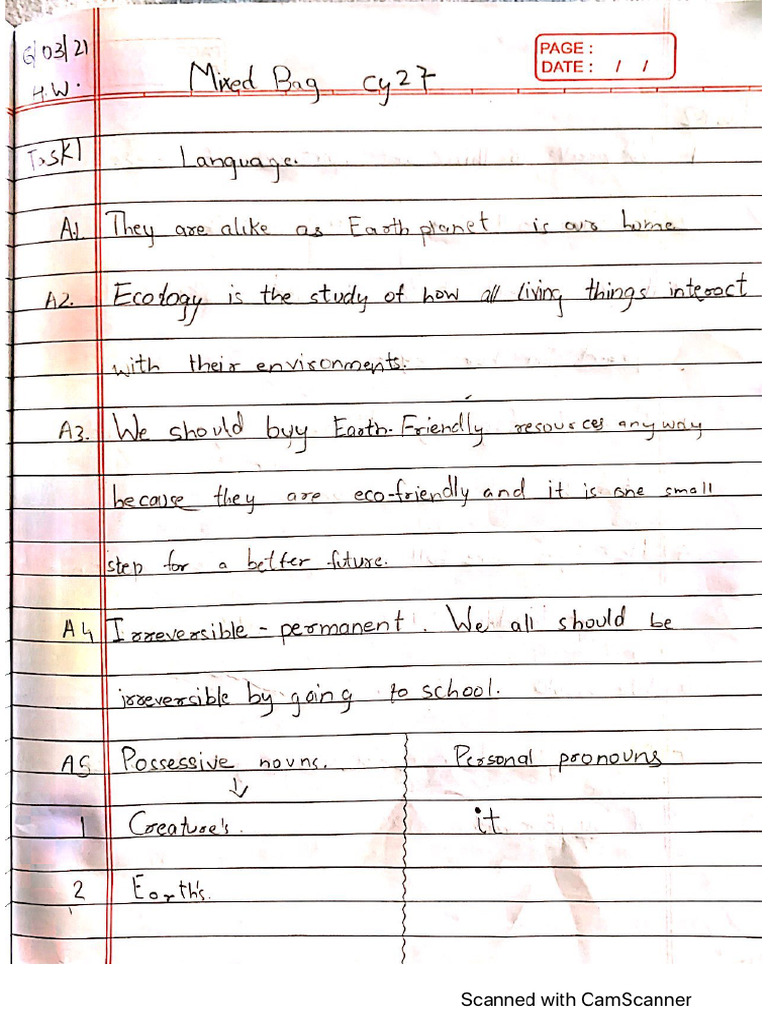 6/03/21
H.W.
PAGE :
DATE : / /
Mixed Bag cy27
Task1 Language.
A1. They are alike as Earth planet is our home
A2. Ecology is the study of how all living things interact
with their environments.
A3. We should buy Earth-Friendly resources anyway
because they are eco-friendly and it is one small
step for a better future.
A4 Irreversible - permanent. We all should be
irreversible by going to school.
A5 Possessive nouns. Personal pronouns
1 Creature's. it
2 Earth's.
Scanned with CamScanner